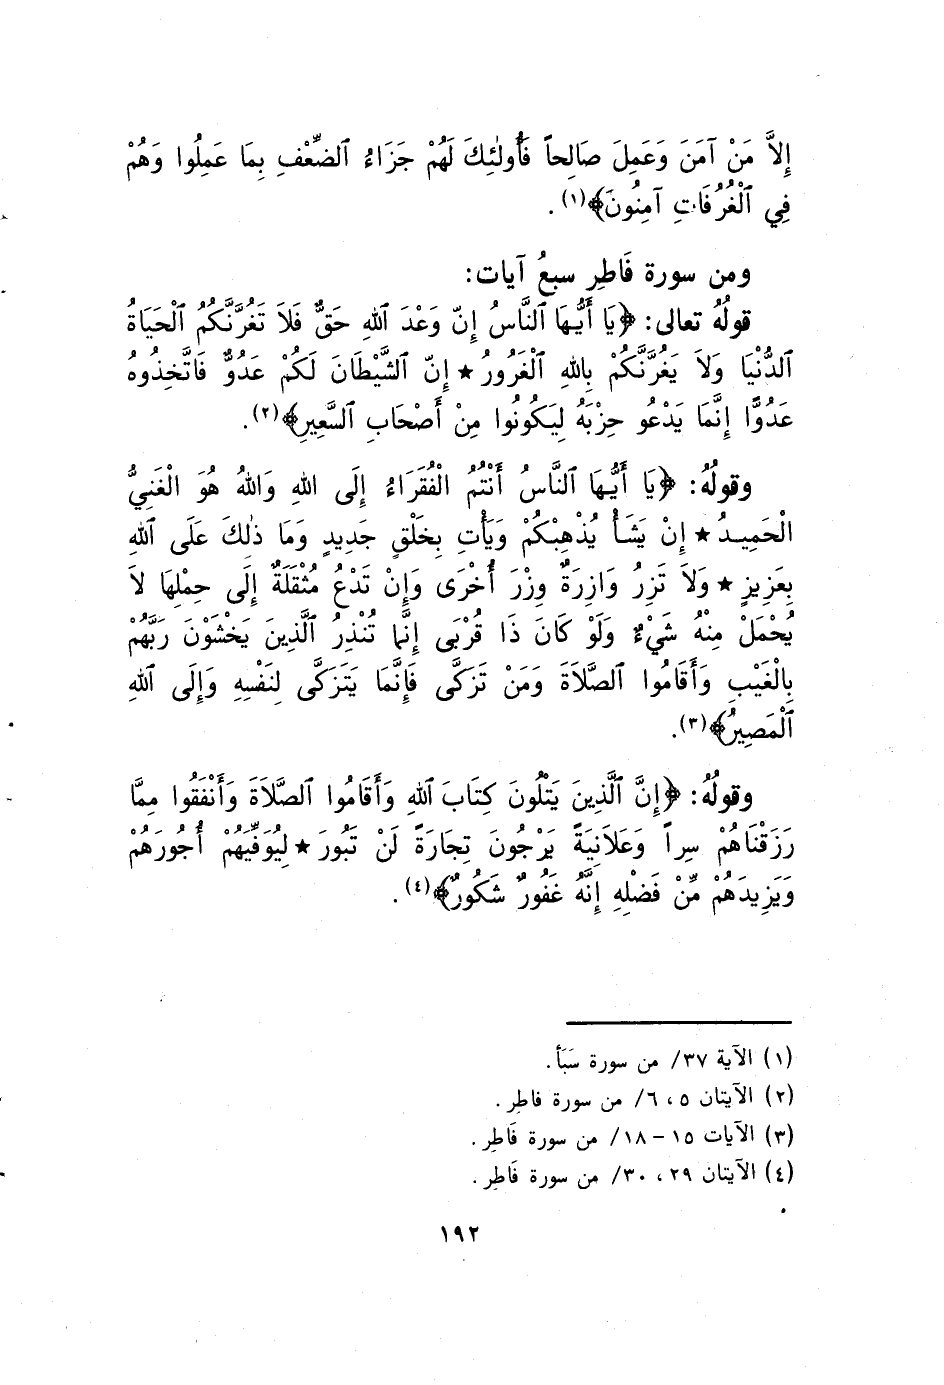 إِلاَّ مَنْ آمَنَ وَعَمِلَ صَالِحاً فَأُولٰئِكَ لَهُمْ جَزَاءُ ٱلضِّعْفِ بِمَا عَمِلُوا وَهُمْ
فِي ٱلْغُرُفَاتِ آمِنُونَ﴾(١) .
ومن سورة فَاطِرٍ سبعُ آيات:
قولُهُ تعالى: ﴿يَا أَيُّهَا ٱلنَّاسُ إِنّ وَعْدَ ٱللهِ حَقٌّ فَلاَ تَغُرَّنَّكُمُ ٱلْحَيَاةُ
ٱلدُّنْيَا وَلاَ يَغُرَّنَّكُمْ بِاللهِ ٱلْغَرُورُ ★ إِنّ ٱلشَّيْطَانَ لَكُمْ عَدُوٌّ فَاتَّخِذُوهُ
عَدُوًّا إِنَّمَا يَدْعُو حِزْبَهُ لِيَكُونُوا مِنْ أَصْحَابِ ٱلسَّعِيرِ﴾(٢).
وقولُهُ: ﴿يَا أَيُّهَا ٱلنَّاسُ أَنْتُمُ الْفُقَرَاءُ إِلَى اللهِ وَاللهُ هُوَ الْغَنِيُّ
الْحَمِيدُ ★ إِنْ يَشَأْ يُذْهِبْكُمْ وَيَأْتِ بِخَلْقٍ جَدِيدٍ وَمَا ذٰلِكَ عَلَى ٱللهِ
بِعَزِيزٍ ★ وَلاَ تَزِرُ وَازِرَةٌ وِزْرَ أُخْرَى وَإِنْ تَدْعُ مُثْقَلَةٌ إِلَى حِمْلِهَا لاَ
يُحْمَلْ مِنْهُ شَيْءٌ وَلَوْ كَانَ ذَا قُرْبَى إِنَّمَا تُنْذِرُ ٱلَّذِينَ يَخْشَوْنَ رَبَّهُمْ
بِالْغَيْبِ وَأَقَامُوا ٱلصَّلاَةَ وَمَنْ تَزَكَّى فَإِنَّمَا يَتَزَكَّى لِنَفْسِهِ وَإِلَى ٱللهِ
ٱلْمَصِيرُ﴾(٣).
وقولُهُ: ﴿إِنَّ ٱلَّذِينَ يَتْلُونَ كِتَابَ ٱللهِ وَأَقَامُوا ٱلصَّلاَةَ وَأَنْفَقُوا مِمَّا
رَزَقْنَاهُمْ سِراً وَعَلاَنِيَةً يَرْجُونَ تِجَارَةً لَنْ تَبُورَ ★ لِيُوَفِّيَهُمْ أُجُورَهُمْ
وَيَزِيدَهُمْ مِّنْ فَضْلِهِ إِنَّهُ غَفُورٌ شَكُورٌ﴾(٤) .
(١) الآية ٣٧/ من سورة سَبَأ.
(٢) الآيتان ٥ ، ٦/ من سورة فاطِر .
(٣) الآيات ١٥ - ١٨/ من سورة فَاطِر .
(٤) الآيتان ٢٩ ، ٣٠/ من سورة فَاطِر .
١٩٢